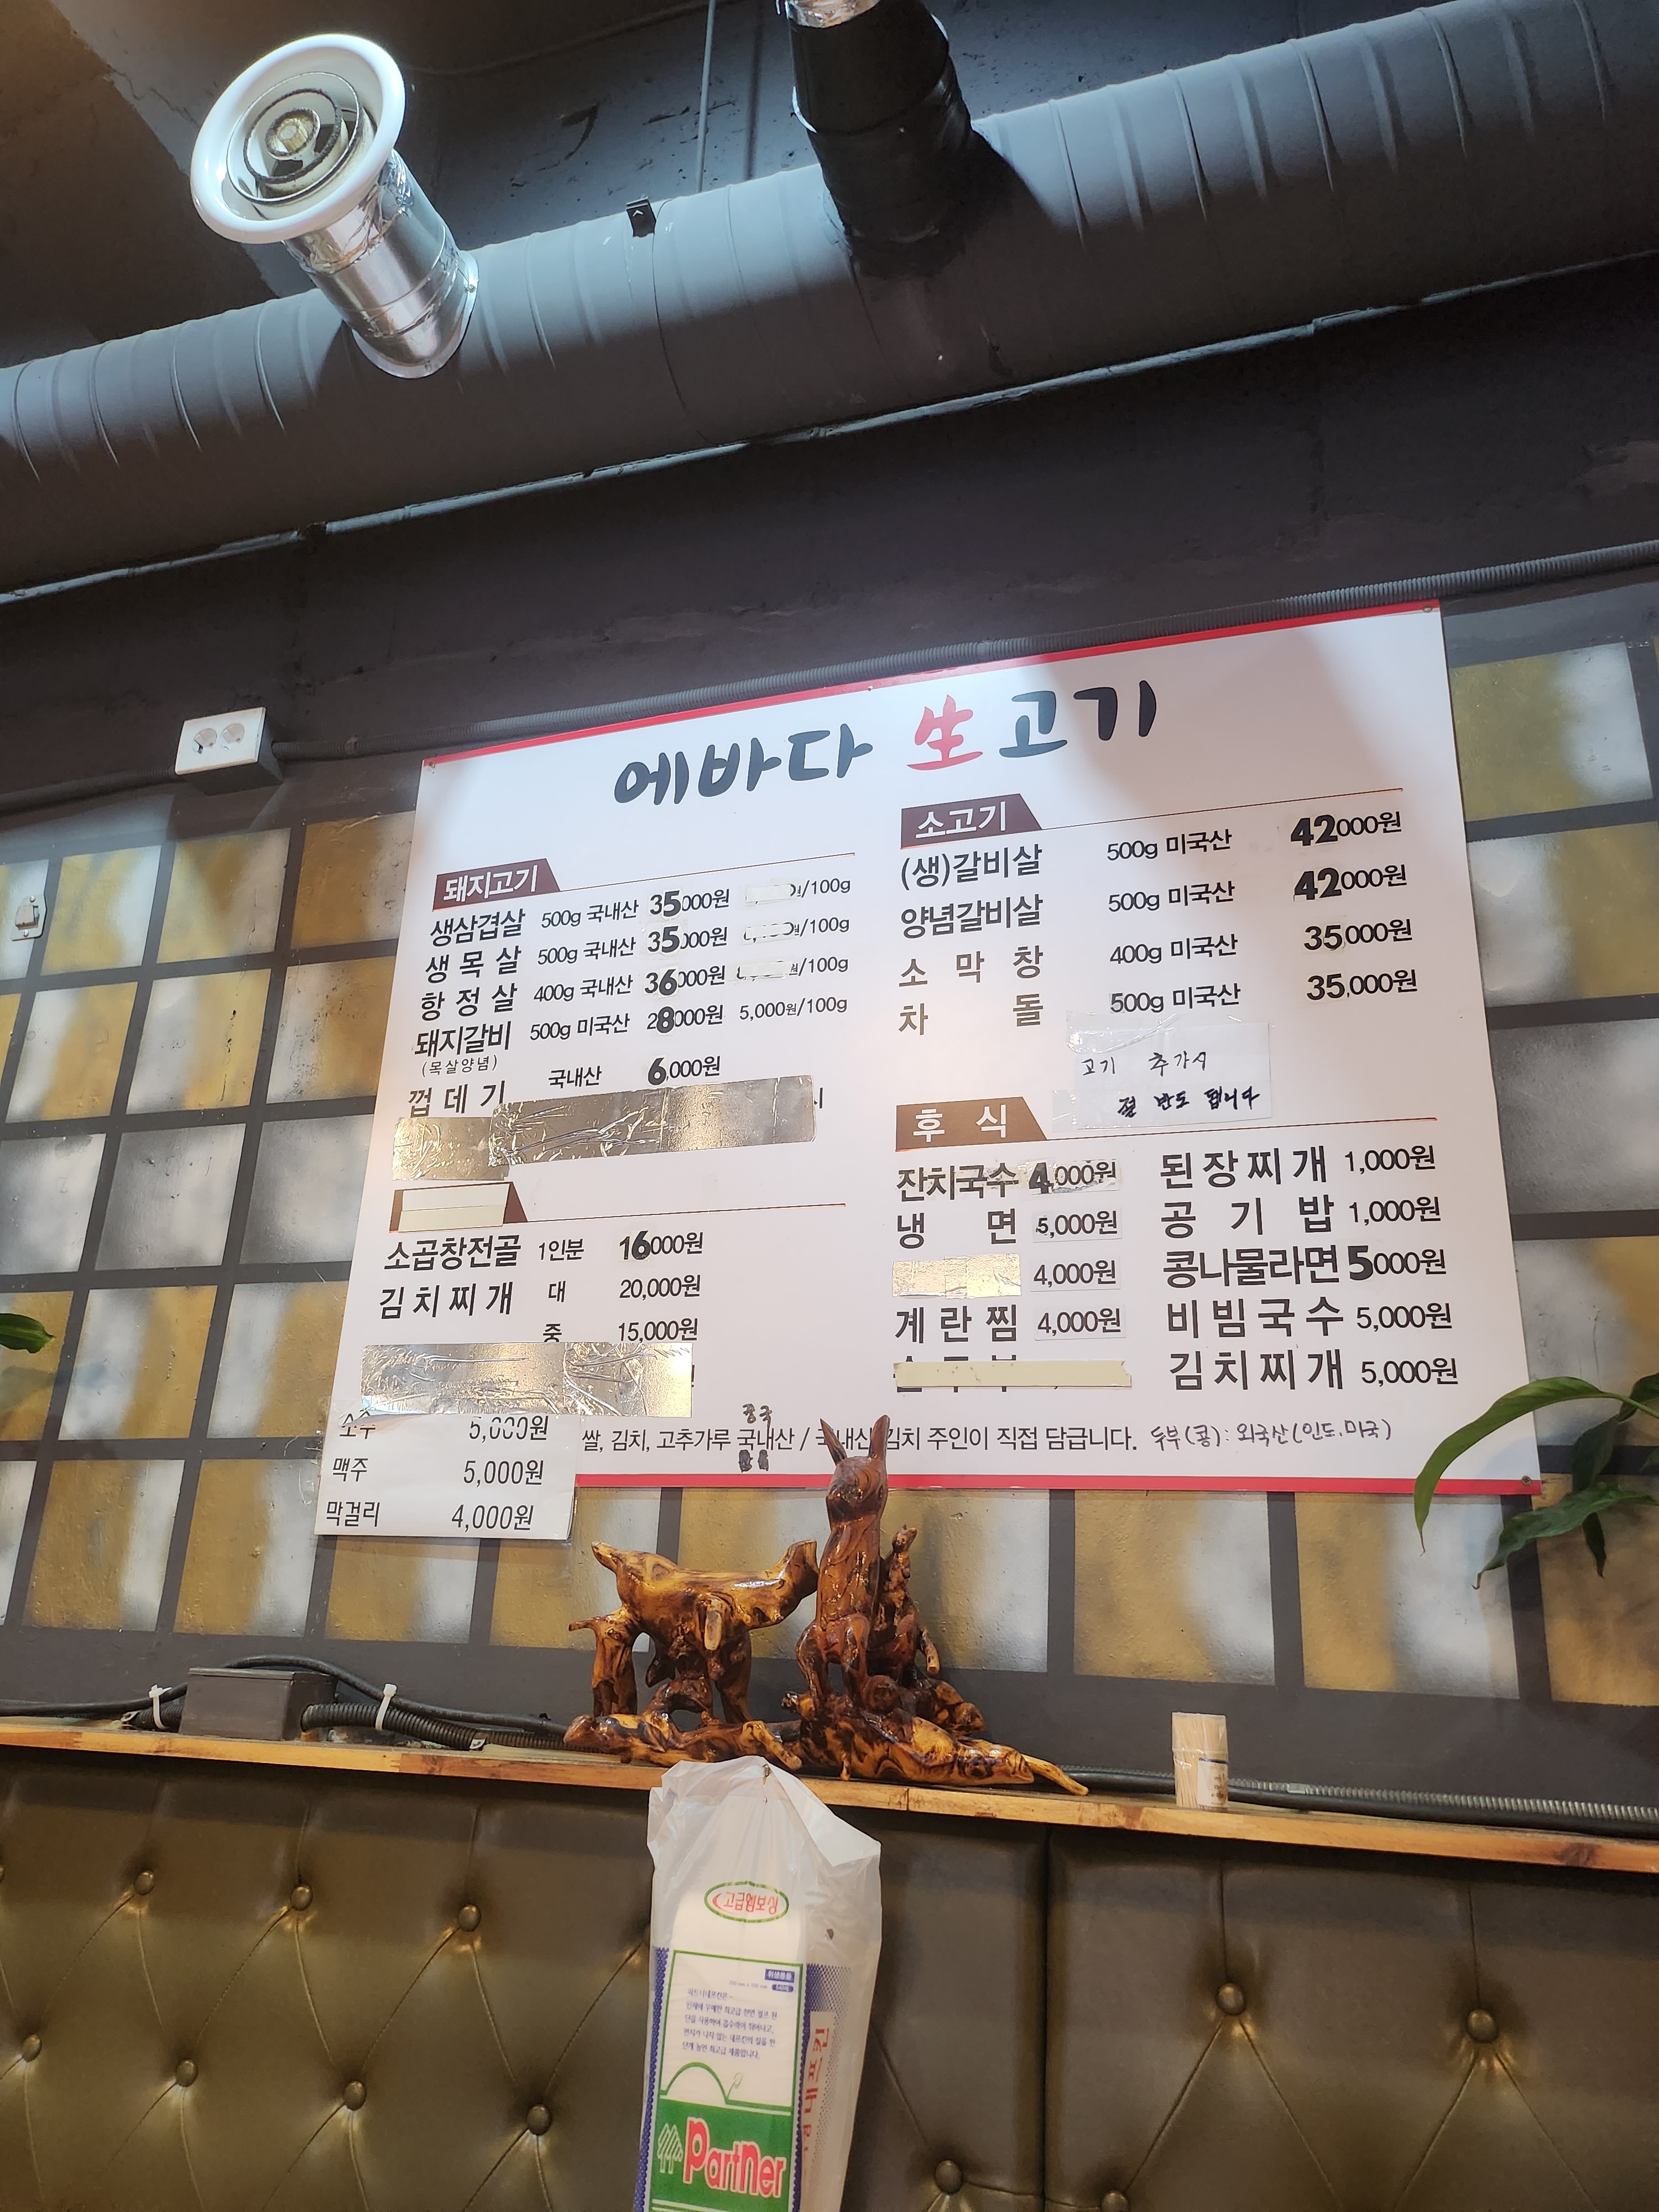 에바다 生고기
돼지고기
생삼겹살 500g 국내산 35000원 /100g
생목살 500g 국내산 35000원 /100g
항정살 400g 국내산 36000원 /100g
돼지갈비 500g 미국산 28000원 5,000원/100g
(목살양념)
껍데기 국내산 6,000원
소곱창전골 1인분 16000원
김치찌개 대 20,000원
중 15,000원
소주 5,000원
맥주 5,000원
막걸리 4,000원
소고기
(생)갈비살 500g 미국산 42000원
양념갈비살 500g 미국산 42000원
소막창 400g 미국산 35,000원
차돌 500g 미국산 35,000원
고기 추가시
절 반도 됩니다
후식
잔치국수 4,000원 된장찌개 1,000원
냉면 5,000원 공기밥 1,000원
4,000원 콩나물라면 5000원
계란찜 4,000원 비빔국수 5,000원
김치찌개 5,000원
중국
쌀, 김치, 고추가루 국내산 / 국내산 김치 주인이 직접 담급니다. 두부(콩): 외국산(인도.미국)
고급엠보싱
위생용품
Partner